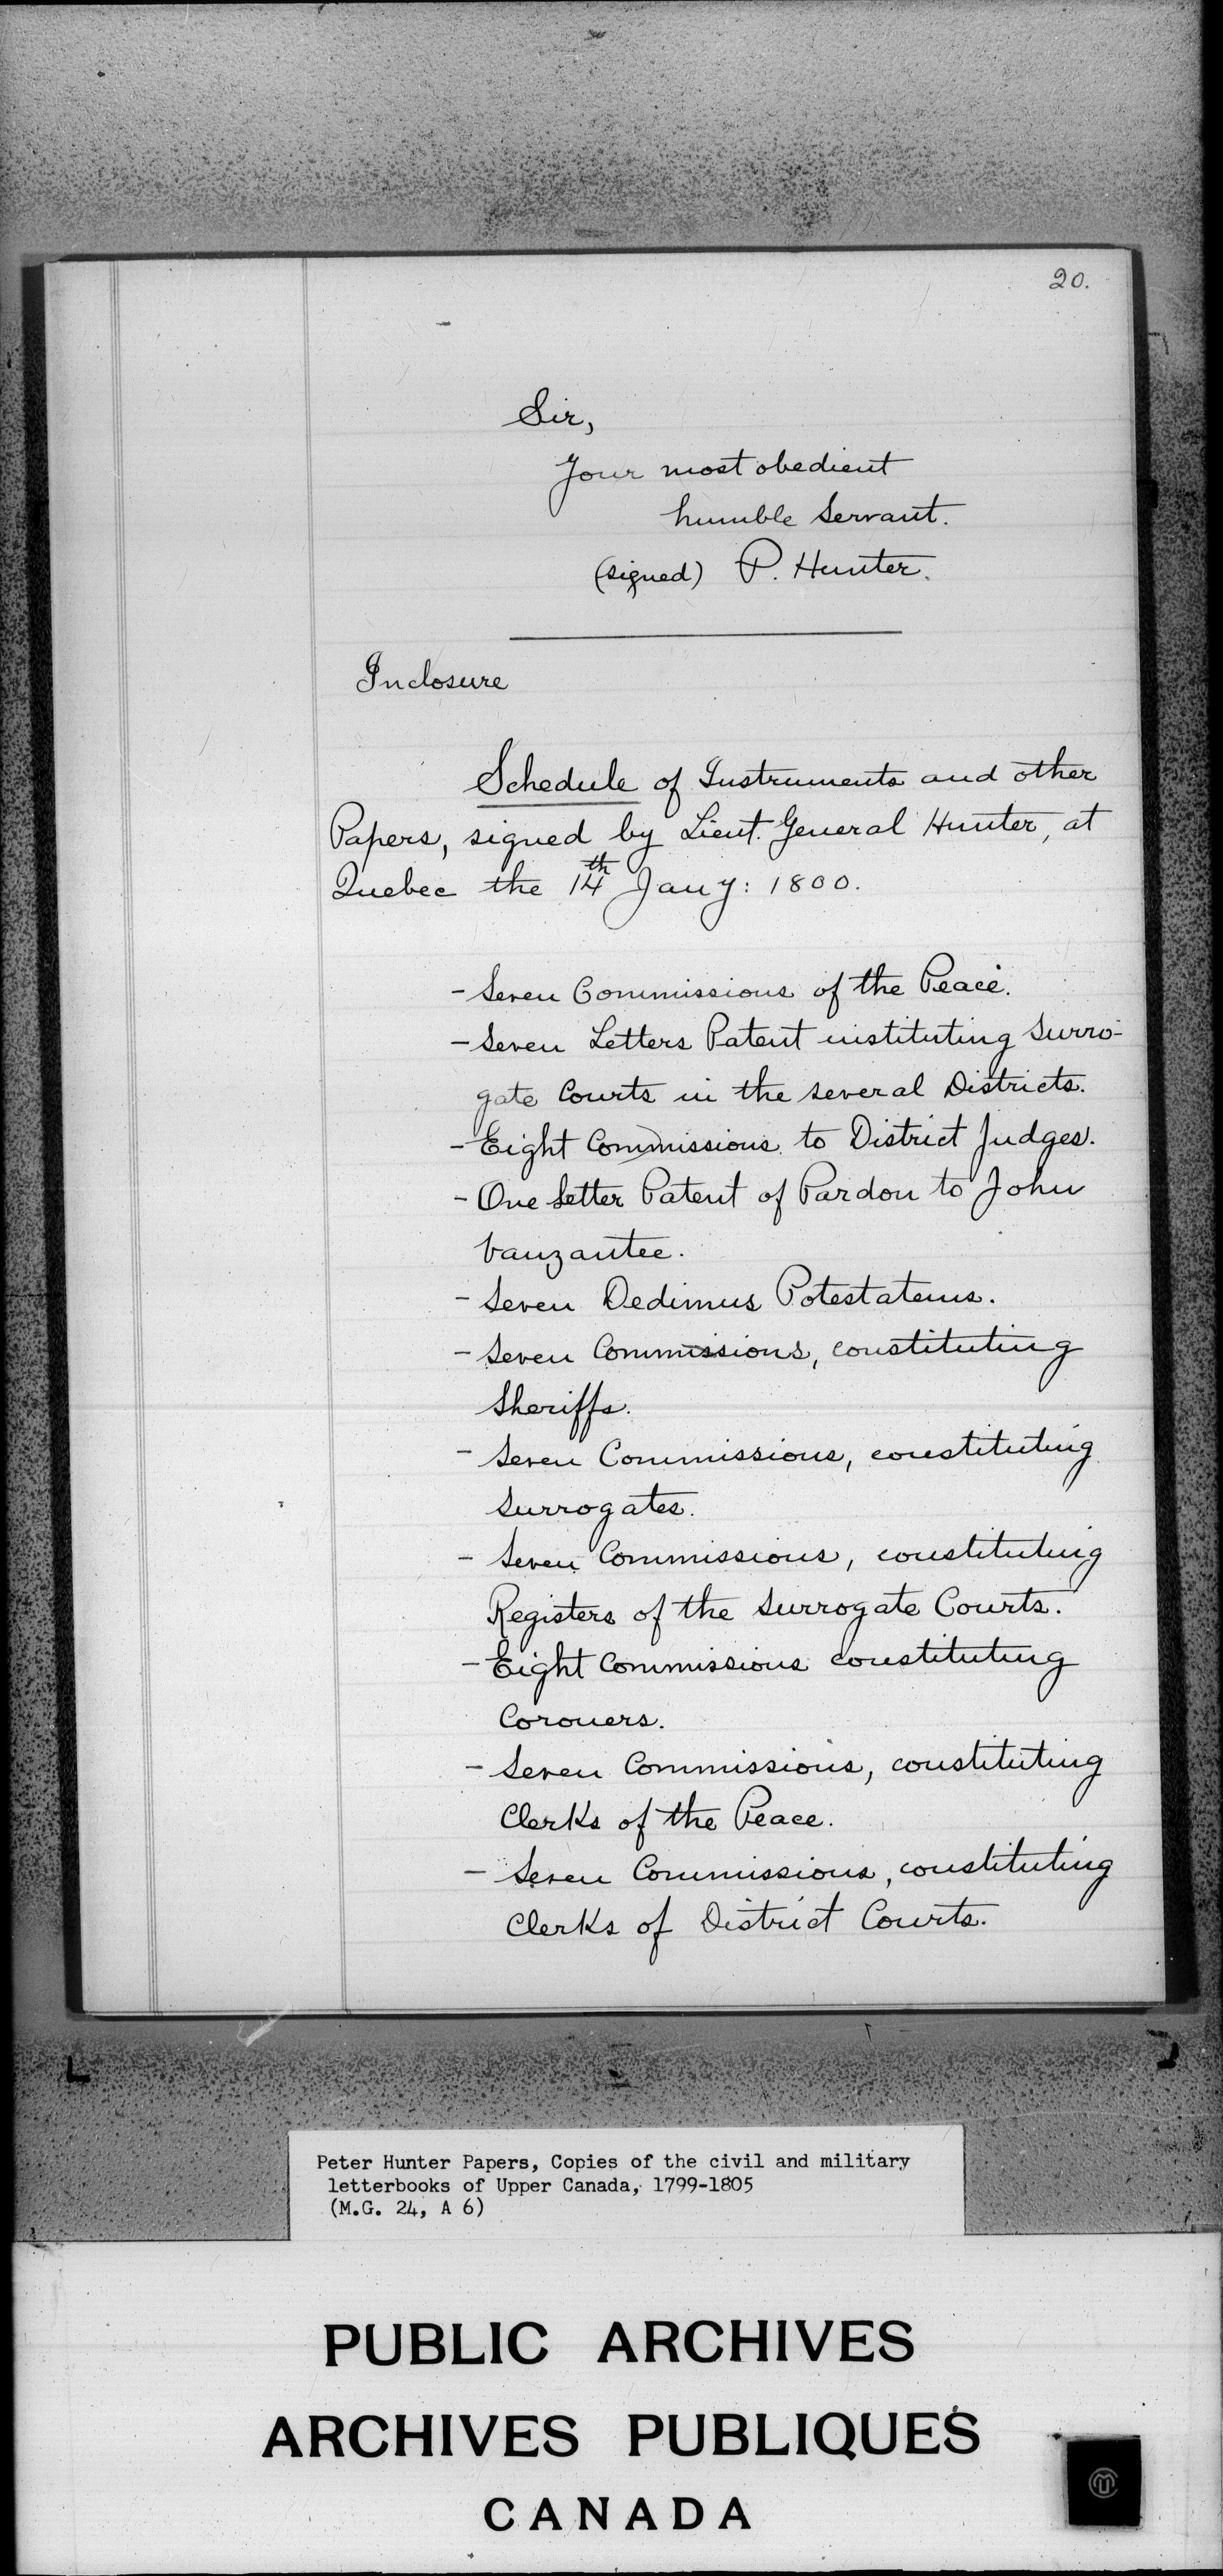 20.
Sir,
Your most obedient
humble Servant.
(signed) P. Hunter.
Inclosure
Schedule of Instruments and other
Papers, signed by Lieut. General Hunter, at
Quebec the 14th Jany: 1800.
- Seven Commissions of the Peace.
- Seven Letters Patent instituting Surro-
gate Courts in the several Districts.
- Eight Commissions to District Judges.
- One Letter Patent of Pardon to John
Vanzantee.
- Seven Dedimus Potestatems.
- Seven Commissions, constituting
Sheriffs.
- Seven Commissions, constituting
Surrogates.
- Seven Commissions, constituting
Registers of the Surrogate Courts.
- Eight Commissions constituting
Coroners.
- Seven Commissions, constituting
Clerks of the Peace.
- Seven Commissions, constituting
Clerks of District Courts.
Peter Hunter Papers, Copies of the civil and military
letterbooks of Upper Canada, 1799-1805
(M.G. 24, A 6)
PUBLIC ARCHIVES
ARCHIVES PUBLIQUES
CANADA